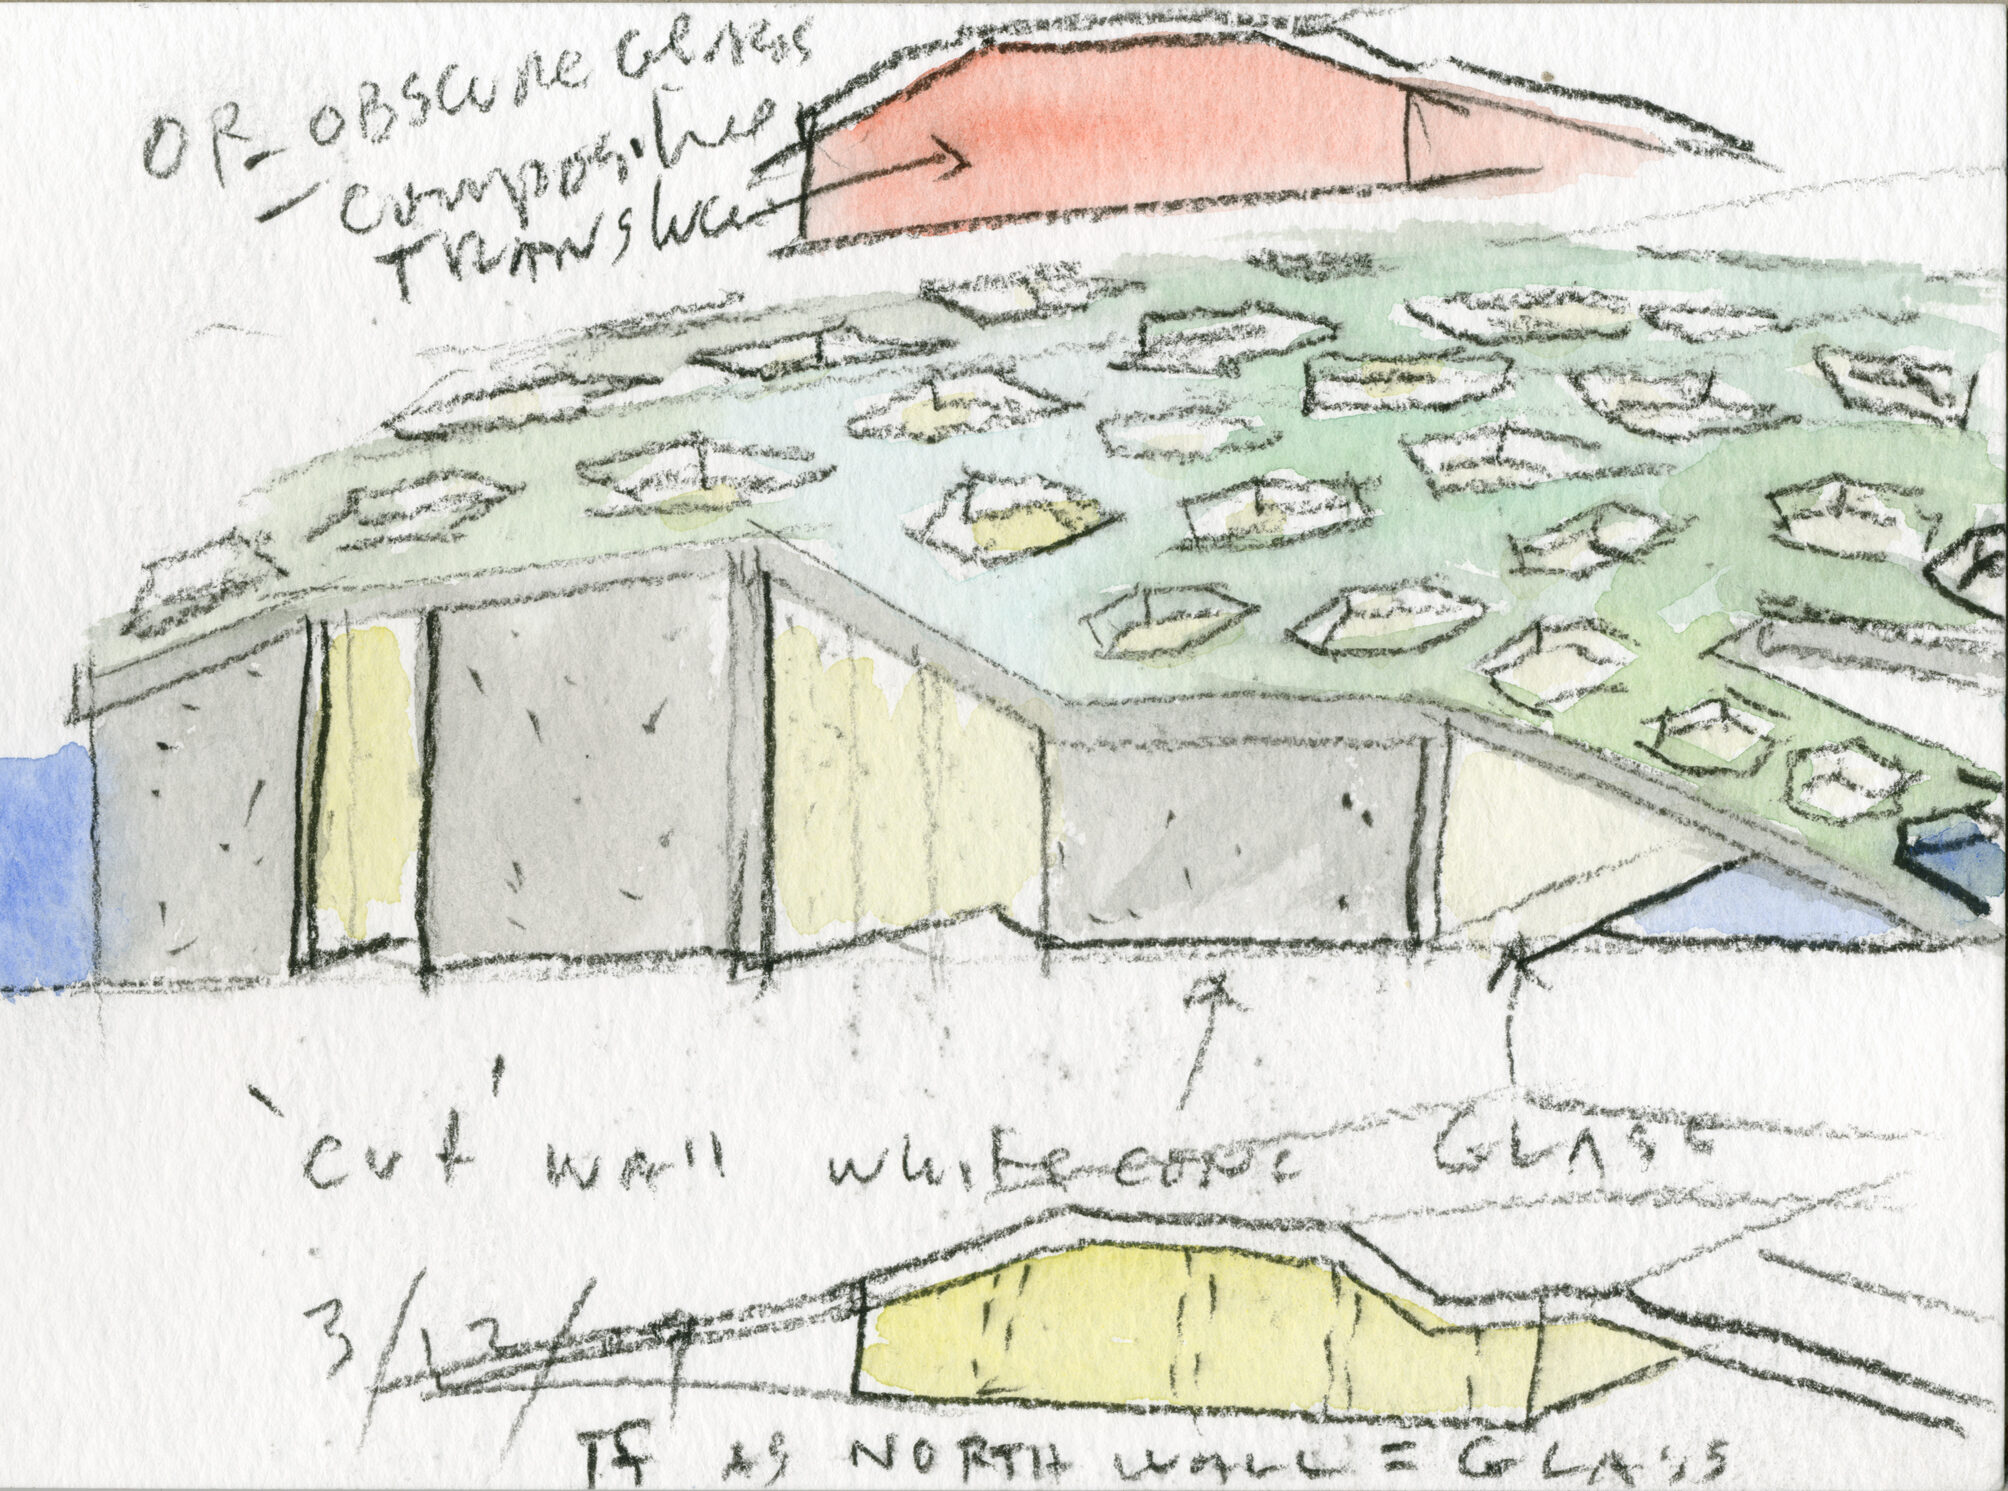 OR - OBSCURE GLASS
- composite
TRANSLUC
'cut' wall white conc GLASS
3/12/09
If as NORTH WALL = GLASS